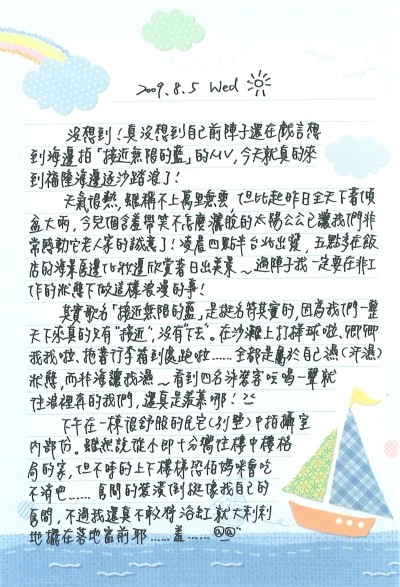 2009.8.5 Wed
沒想到!真沒想到自己前陣子還在戲言想
到海邊拍「接近無限的藍」的MV,今天就真的來
到福隆海邊逐沙踏浪了!
天氣很熱,雖稱不上萬里無雲,但比起昨日全天下著傾
盆大雨,今兒個含羞帶笑不怎麼灑脫的太陽公公已讓我們非
常感動它老人家的誠意了!凌晨四點半台北出發,五點多在飯
店的海景區邊化妝邊欣賞著日出美景~過陣子我一定要在非工
作的狀態下做這樣浪漫的事!
其實歌方「接近無限的藍」是挺名符其實的,因為我們一整
天下來真的只有"接近",沒有"下去"。在沙灘上打棒球啦、卿卿
我我啦、拖著行李箱到處跑啦......全都是屬於自己濕(汗濕)
狀態,而非海讓我濕~看到四名游客吆喝一聲就
往浪裡奔的我們,還真是羨慕哪!
下午在一棟很舒服的民宅(別墅)中拍攝室
內部份。雖然說從小即十分嚮往樓中樓格
局的家,但不時的上下樓梯恐怕媽咪會吃
不消吧......房間的裝潢倒挺像我自己的
房間,不過我還真不敢將浴缸就大剌剌
地擺在落地窗前耶......羞......